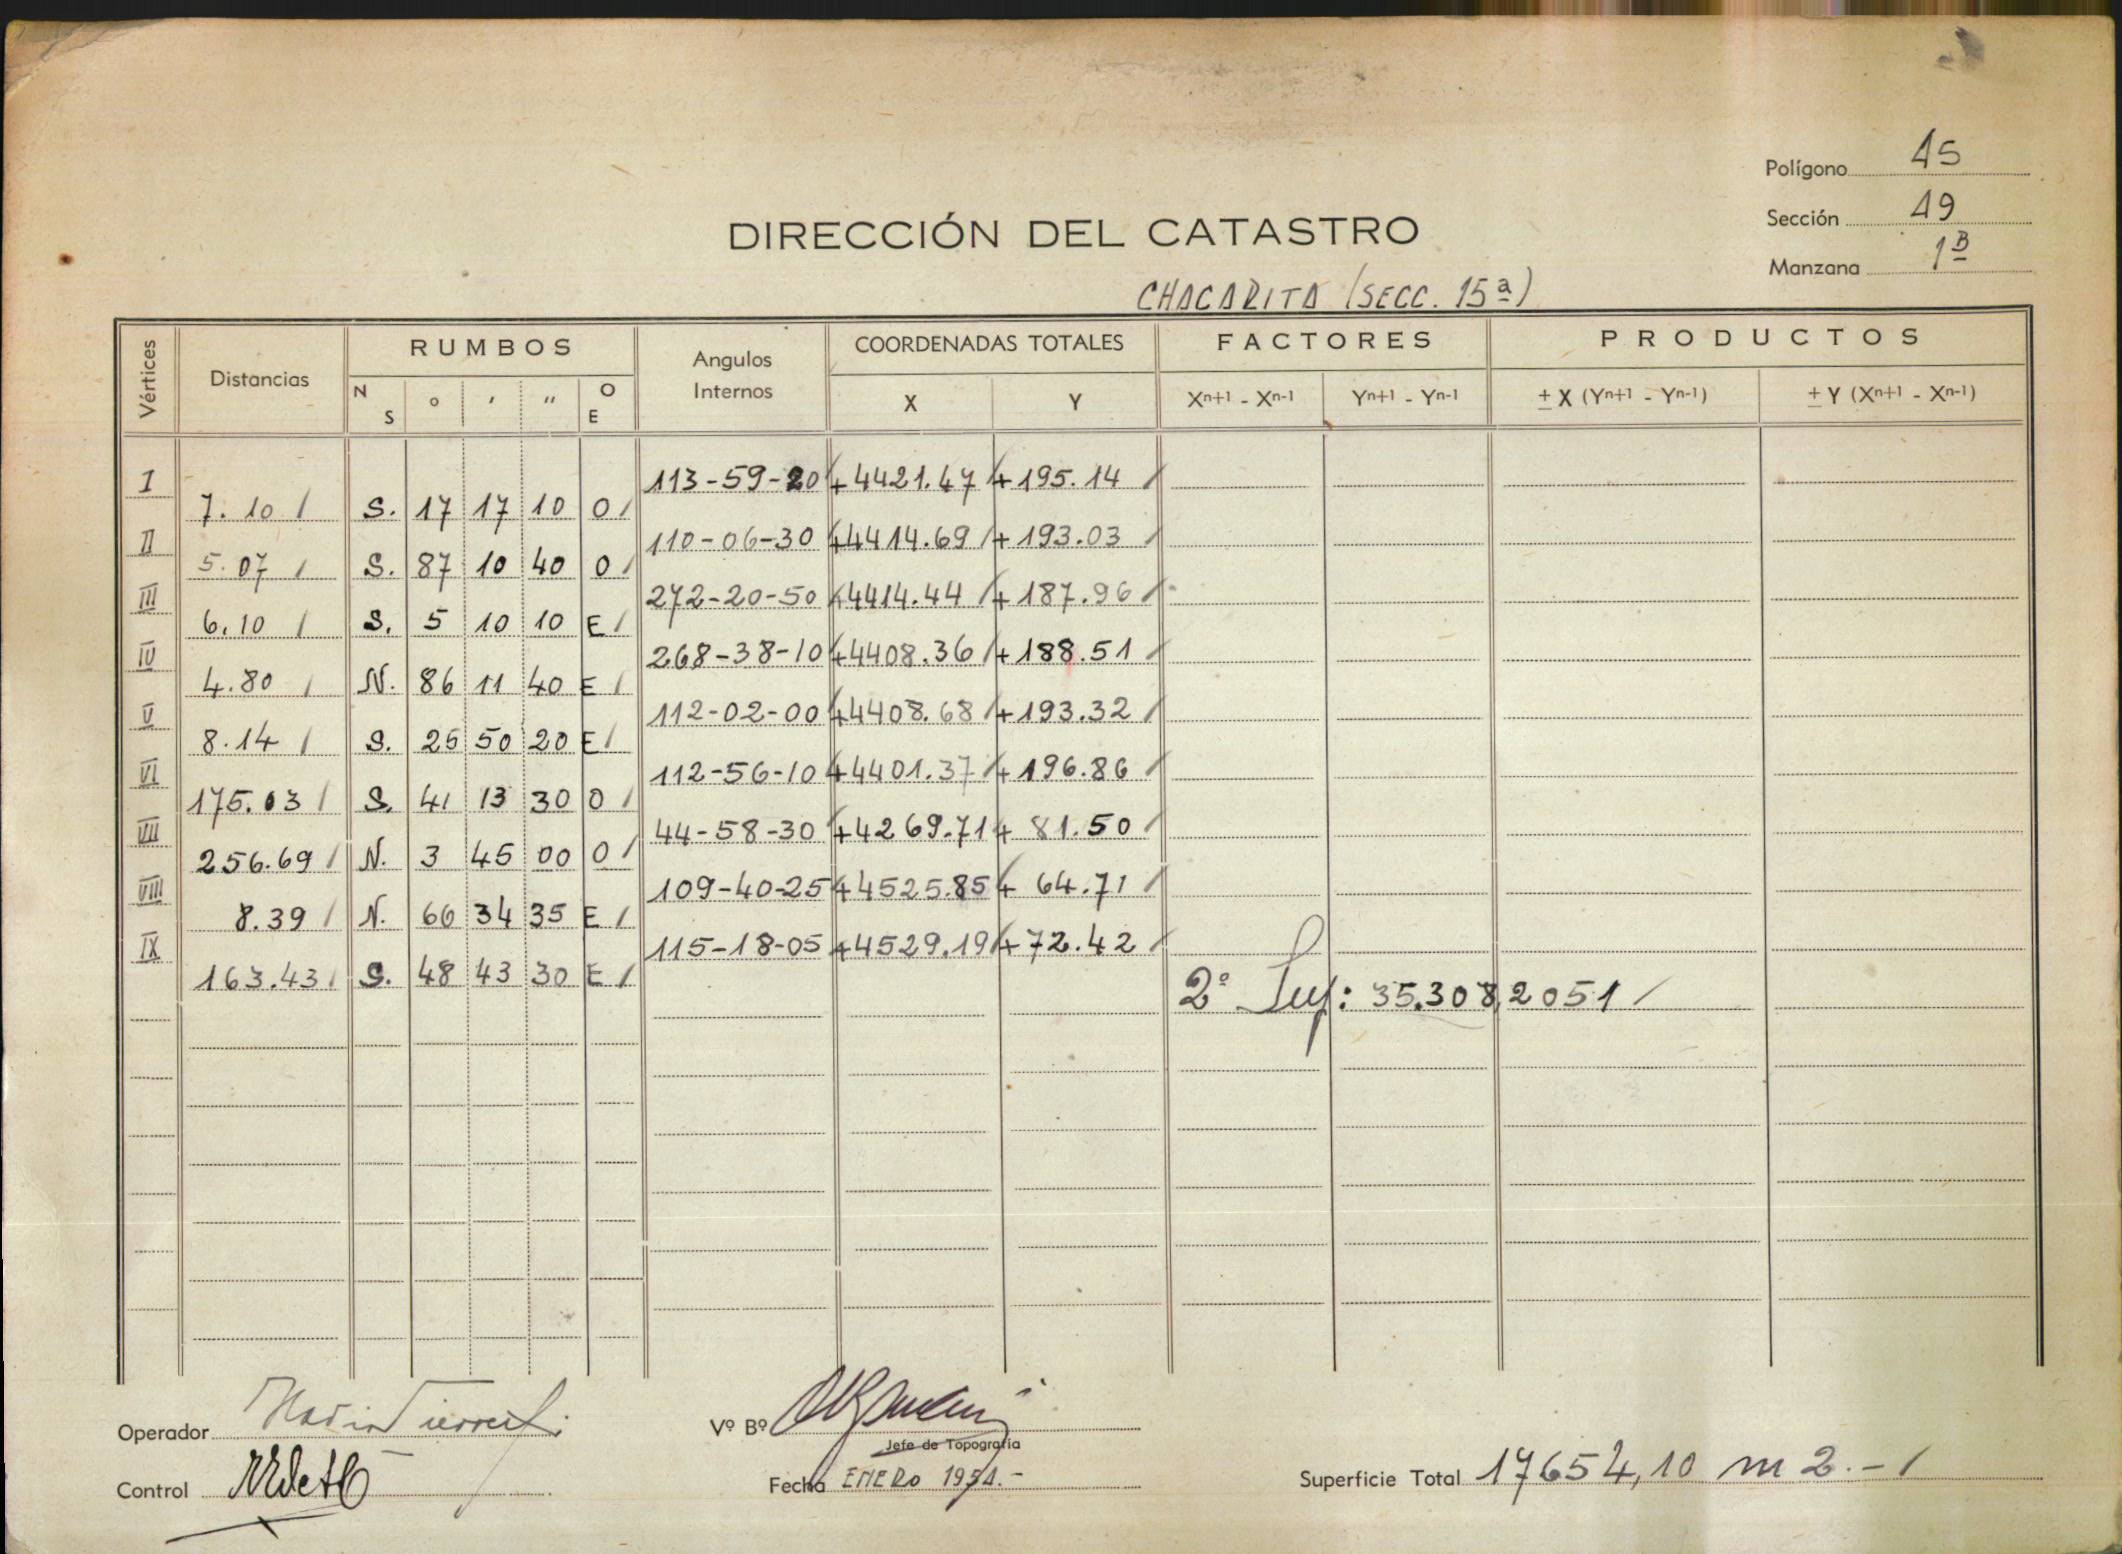 Polígono 45
Sección 49
Manzana 1B
DIRECCIÓN DEL CATASTRO
CHACARITA (SECC. 15ª)
Vértices Distancias RUMBOS Angulos Internos COORDENADAS TOTALES FACTORES PRODUCTOS
N S ° ' " O E X Y Xn+1 - Xn-1 Yn+1 - Yn-1 ± X (Yn+1 - Yn-1) ± Y (Xn+1 - Xn-1)
I 113-59-20 +4421.47 +195.14
7.10 S. 17 17 10 O
II 110-06-30 +4414.69 +193.03
5.07 S. 87 10 40 O
III 272-20-50 +4414.44 +187.96
6.10 S. 5 10 10 E
IV 268-38-10 +4408.36 +188.51
4.80 N. 86 11 40 E
V 112-02-00 +4408.68 +193.32
8.14 S. 25 50 20 E
VI 112-56-10 +4401.37 +196.86
175.03 S. 41 13 30 O
VII 44-58-30 +4269.71 + 81.50
256.69 N. 3 45 00 O
VIII 109-40-25 +4525.85 + 64.71
8.39 N. 66 34 35 E
IX 115-18-05 +4529.19 +72.42
163.43 S. 48 43 30 E
2ª Sup: 35.308,2051
Operador
Vº Bº
Jefe de Topografía
Control
Fecha ENERO 1954.-
Superficie Total 17654,10 m2.-